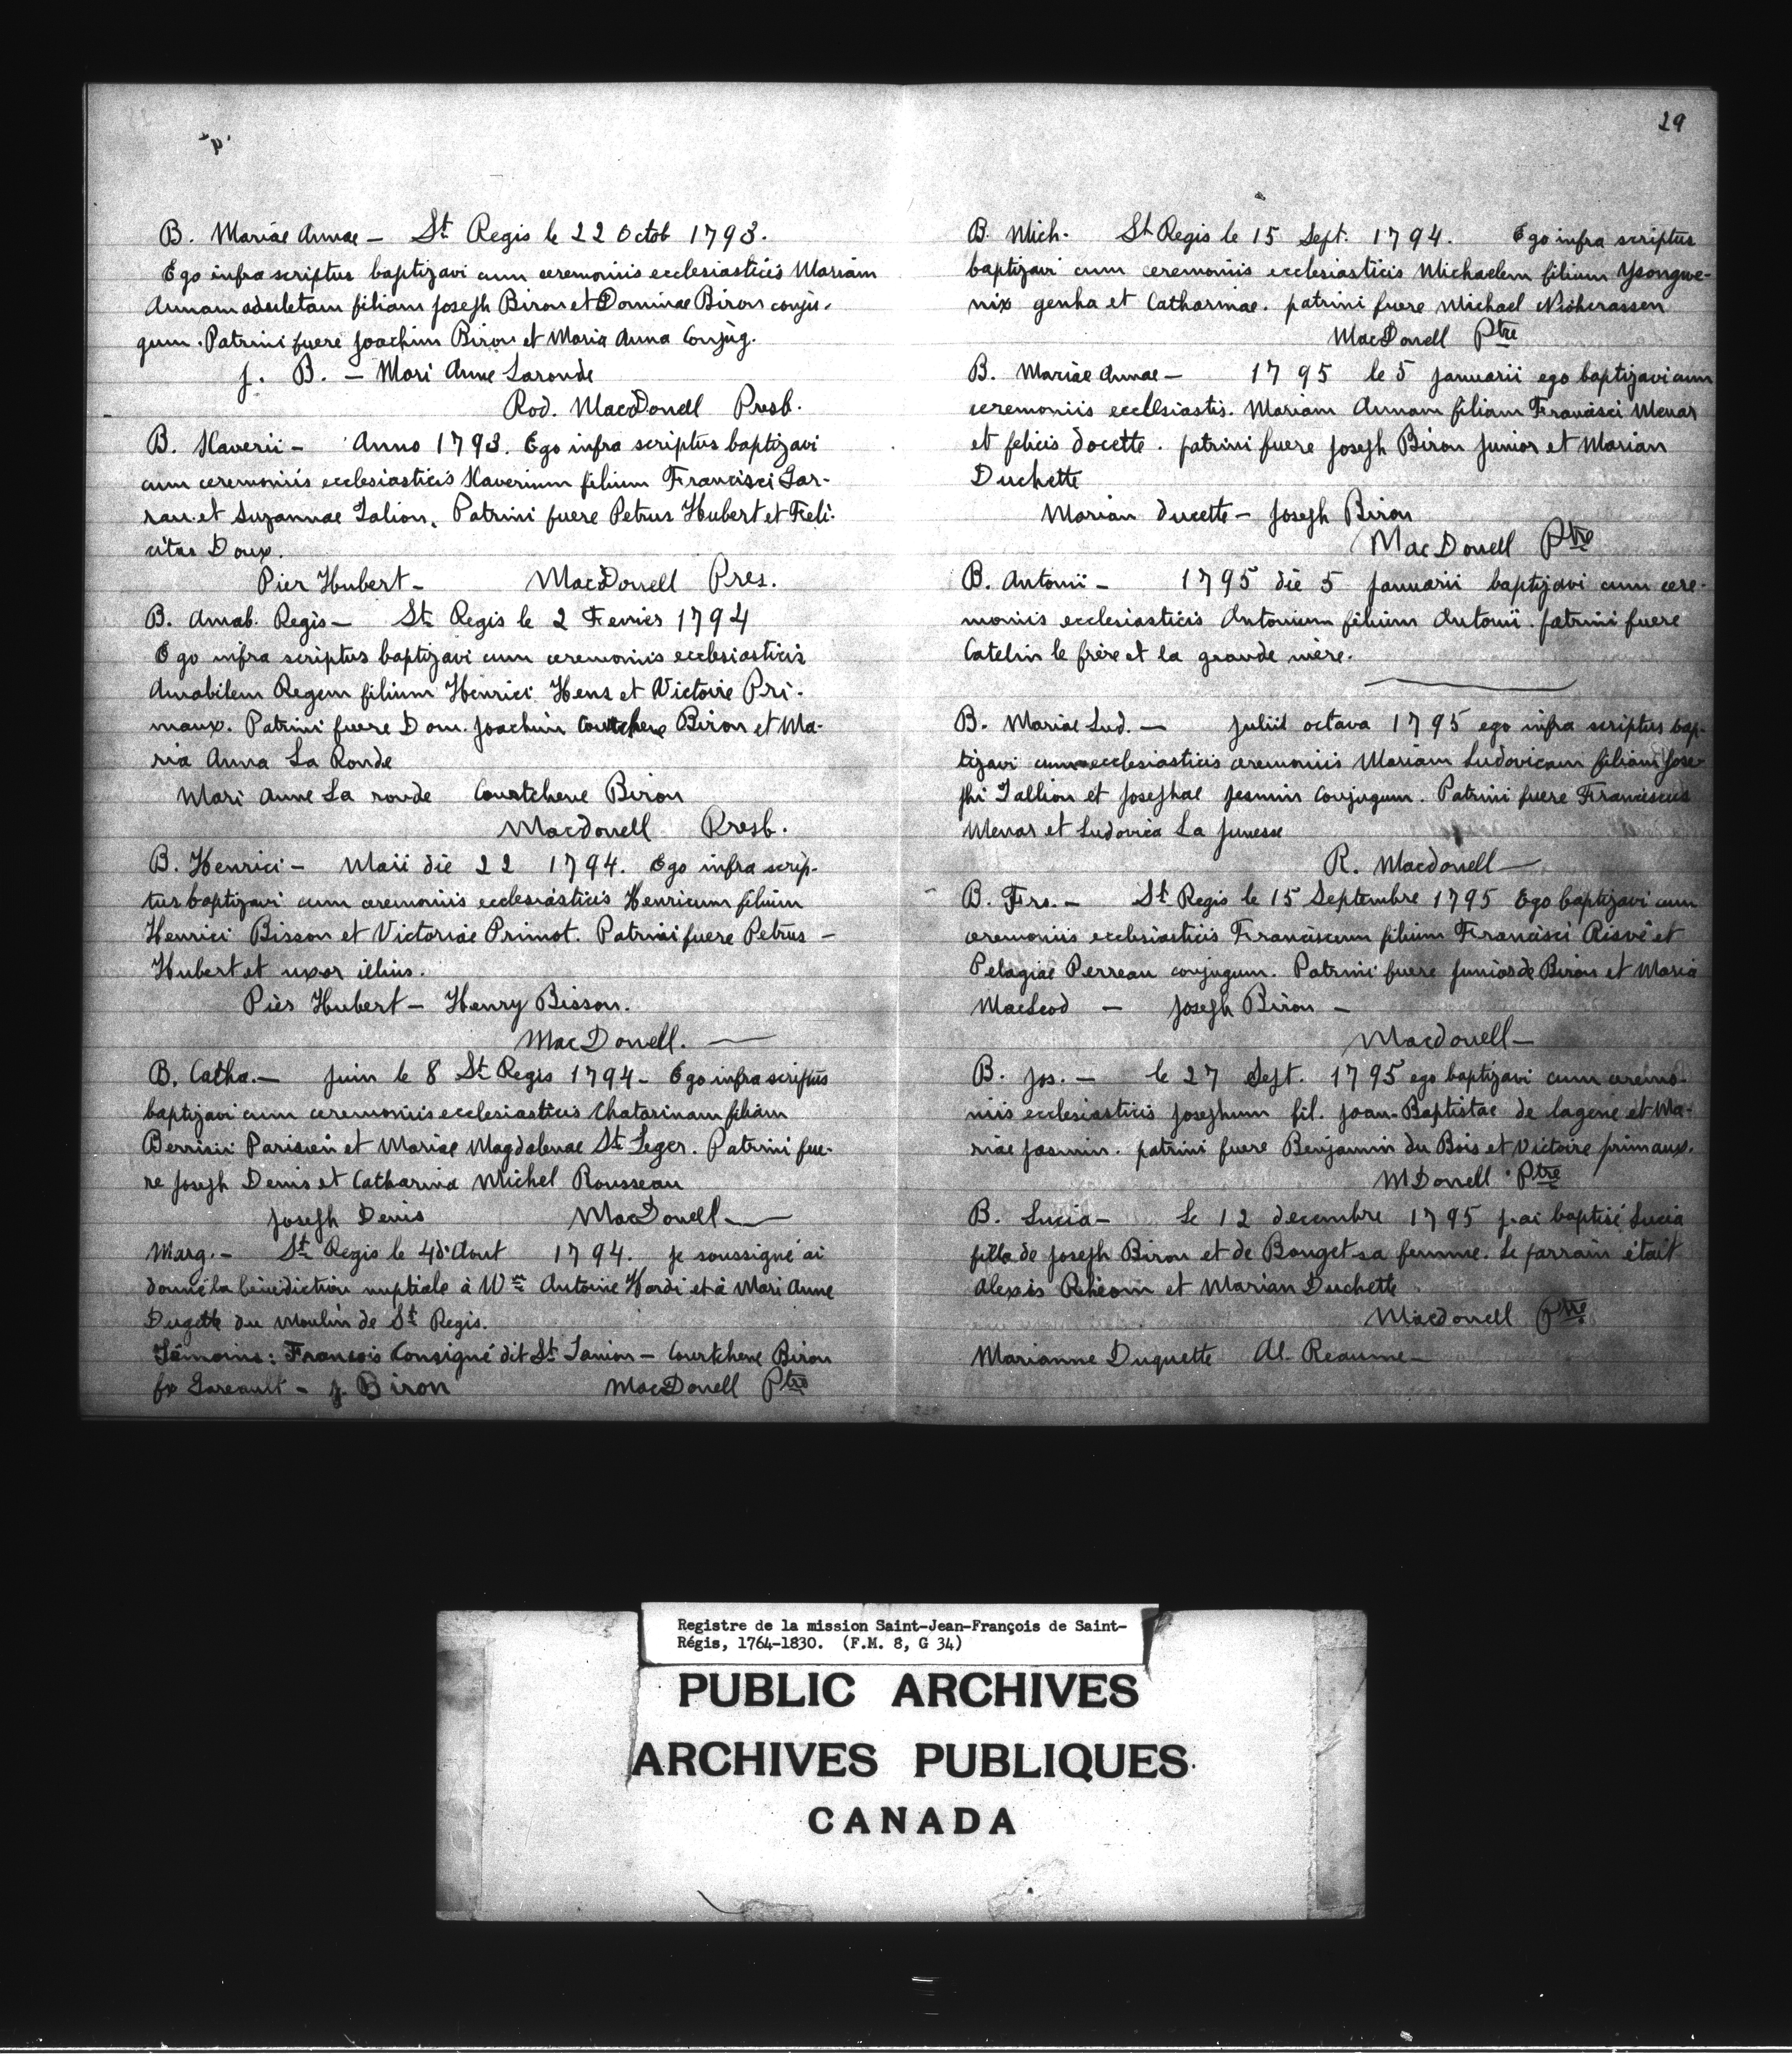 B. Mariae Annae — St Regis le 22 Octob 1793.
Ego infra scriptus baptizavi cum ceremoniis ecclesiasticis Mariam
Annam filiam Joseph Biron et Dominae Biron conju-
gum. Patrini fuere Joachim Biron et Maria Anna Conjug.
J. B. — Mari Anne Laronde
Rod. MacDonell Presb.
B. Xaverii — Anno 1793. Ego infra scriptus baptizavi
cum ceremoniis ecclesiasticis Xaverium filium Francisci Lar-
rau et Suzannae Talion. Patrini fuere Petrus Hubert et Feli-
citas Doux.
Pier Hubert — MacDonell Pres.
B. Amab. Regis — St Regis le 2 Fevrier 1794
Ego infra scriptus baptizavi cum ceremoniis ecclesiasticis
Amabilem Regem filium Henrici Hens et Victoire Pri-
maux. Patrini fuere Dom. Joachim Biron et Ma-
ria Anna La Ronde
Mari Anne La ronde Courtchene Biron
Macdonell Presb.
B. Henrici — Maii die 22 1794. Ego infra scrip-
tus baptizavi cum ceremoniis ecclesiasticis Henricum filium
Henrici Bisson et Victoriae Primot. Patrini fuere Petrus —
Hubert et uxor illius.
Pier Hubert — Henry Bisson.
MacDonell. —
B. Catha. — Juin le 8 St Regis 1794 — Ego infra scriptus
baptizavi cum ceremoniis ecclesiasticis Chatarinam filiam
Parisien et Mariae Magdalenae St Leger. Patrini fue-
re Joseph Denis et Catharina Michel Rousseau
Joseph Denis MacDonell —
Marg. — St Regis le 4 d'Aout 1794. Je soussigné ai
donné la bénédiction nuptiale à Antoine Hardi et à Mari Anne
Dugette du Moulin de St Regis.
Témoins: François Consigné dit St — Courtchene Biron
fx Lareault — J. Biron MacDonell Ptre
29
B. Mich. St Regis le 15 Sept. 1794. Ego infra scriptus
baptizavi cum ceremoniis ecclesiasticis Michaelem filium Ysongwe-
nix genha et Catharinae. patrini fuere Michael Nioherassen
MacDonell Ptre
B. Mariae Annae — 1795 le 5 Januarii ego baptizavi cum
ceremoniis ecclesiastis. Mariam Annam filiam Francisci Menar
et felicis docette. patrini fuere Joseph Biron Junior et Marian
Duchette
Marian ducette — Joseph Biron
MacDonell Ptre
B. Antonii — 1795 die 5 Januarii baptizavi cum cere-
moniis ecclesiasticis Antonium filium Antonii. patrini fuere
Catelin le frère et la grande mère.
B. Mariae Lud. — Julii octava 1795 ego infra scriptus bap-
tizavi cum ecclesiasticis ceremoniis Mariam Ludovicam filiam Jose-
phi Tallion et Josephae Jesmin Conjugum. Patrini fuere Franciscus
Menar et Ludovica La Junesse
R. Macdonell —
B. Frs. — St Regis le 15 Septembre 1795 Ego baptizavi cum
ceremoniis ecclesiasticis Franciscum filium Francisci Risvé et
Pelagiae Perreau conjugum. Patrini fuere Biron et Maria
MacLeod — Joseph Biron —
Macdonell —
B. Jos. — le 27 Sept. 1795 ego baptizavi cum ceremo-
niis ecclesiasticis Josephum fil. Joan-Baptistae de lagene et Ma-
riae Jasmin. patrini fuere Benjamin du Bois et Victoire primaux.
MDonell Ptre
B. Lucia — Le 12 decembre 1795 j'ai baptisé Lucia
fille de Joseph Biron et de Bouget sa femme. Le parrain était
Alexis Rhéom et Marian Duchette
Macdonell Ptre
Marianne Duquette Al. Reaume —
Registre de la mission Saint-Jean-François de Saint-
Régis, 1764-1830. (F.M. 8, G 34)
PUBLIC ARCHIVES
ARCHIVES PUBLIQUES
CANADA